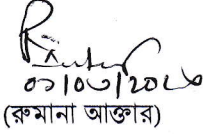 ০১/০৩/২০২৬
(রুমানা আক্তার)